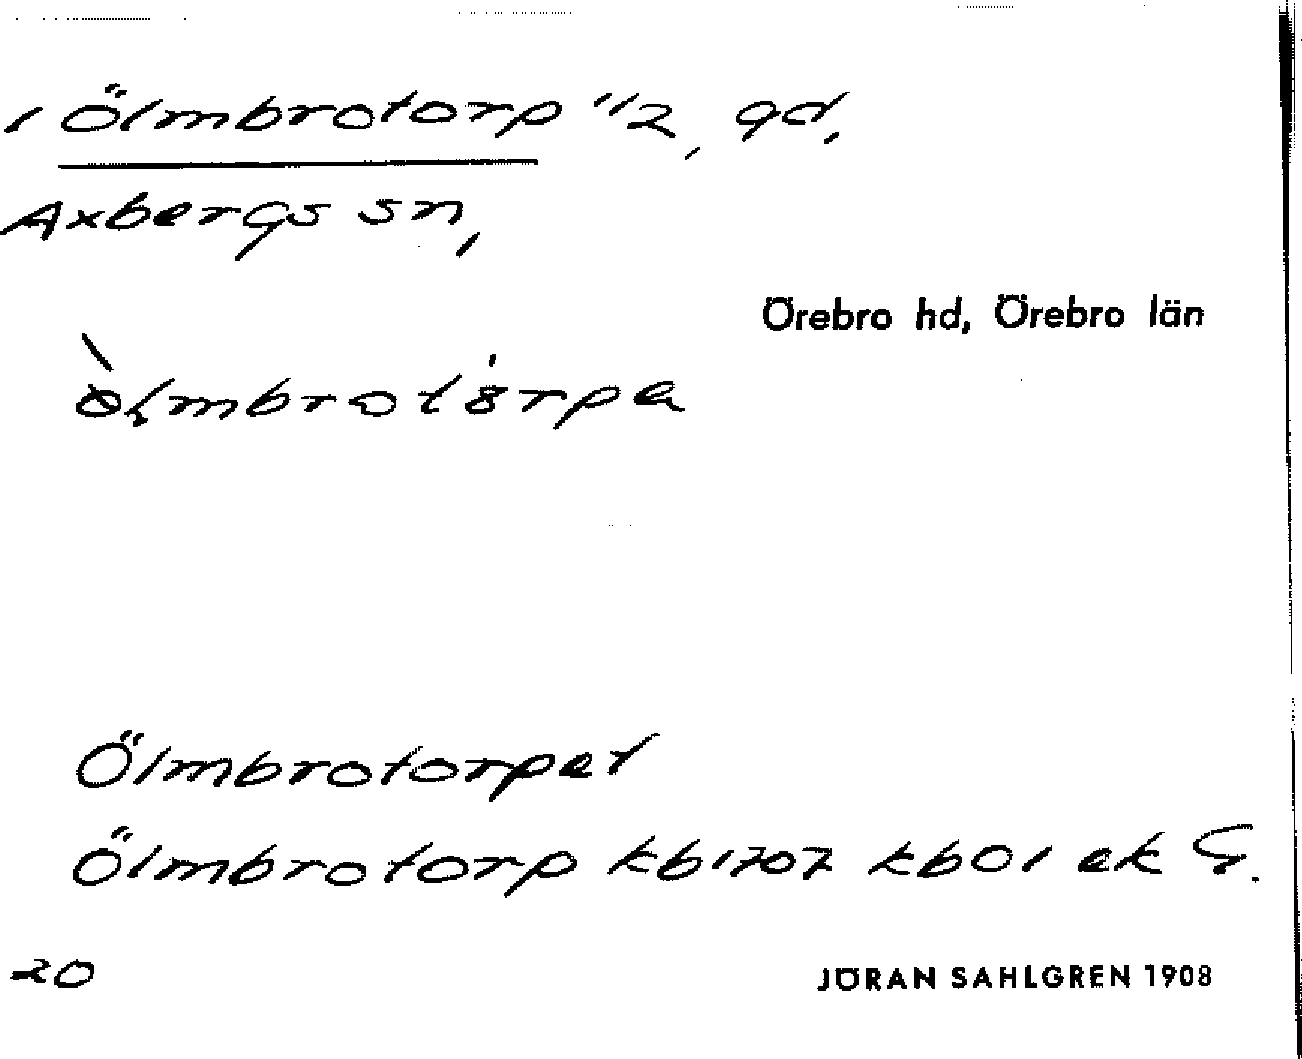 1 Ölmbrotorp 1/2, gd,
Axbergs sn,
Örebro hd, Örebro län
Ölmbrotorpet
Ölmbrotorp kb1707 kb01 ek G.
20
JÖRAN SAHLGREN 1908